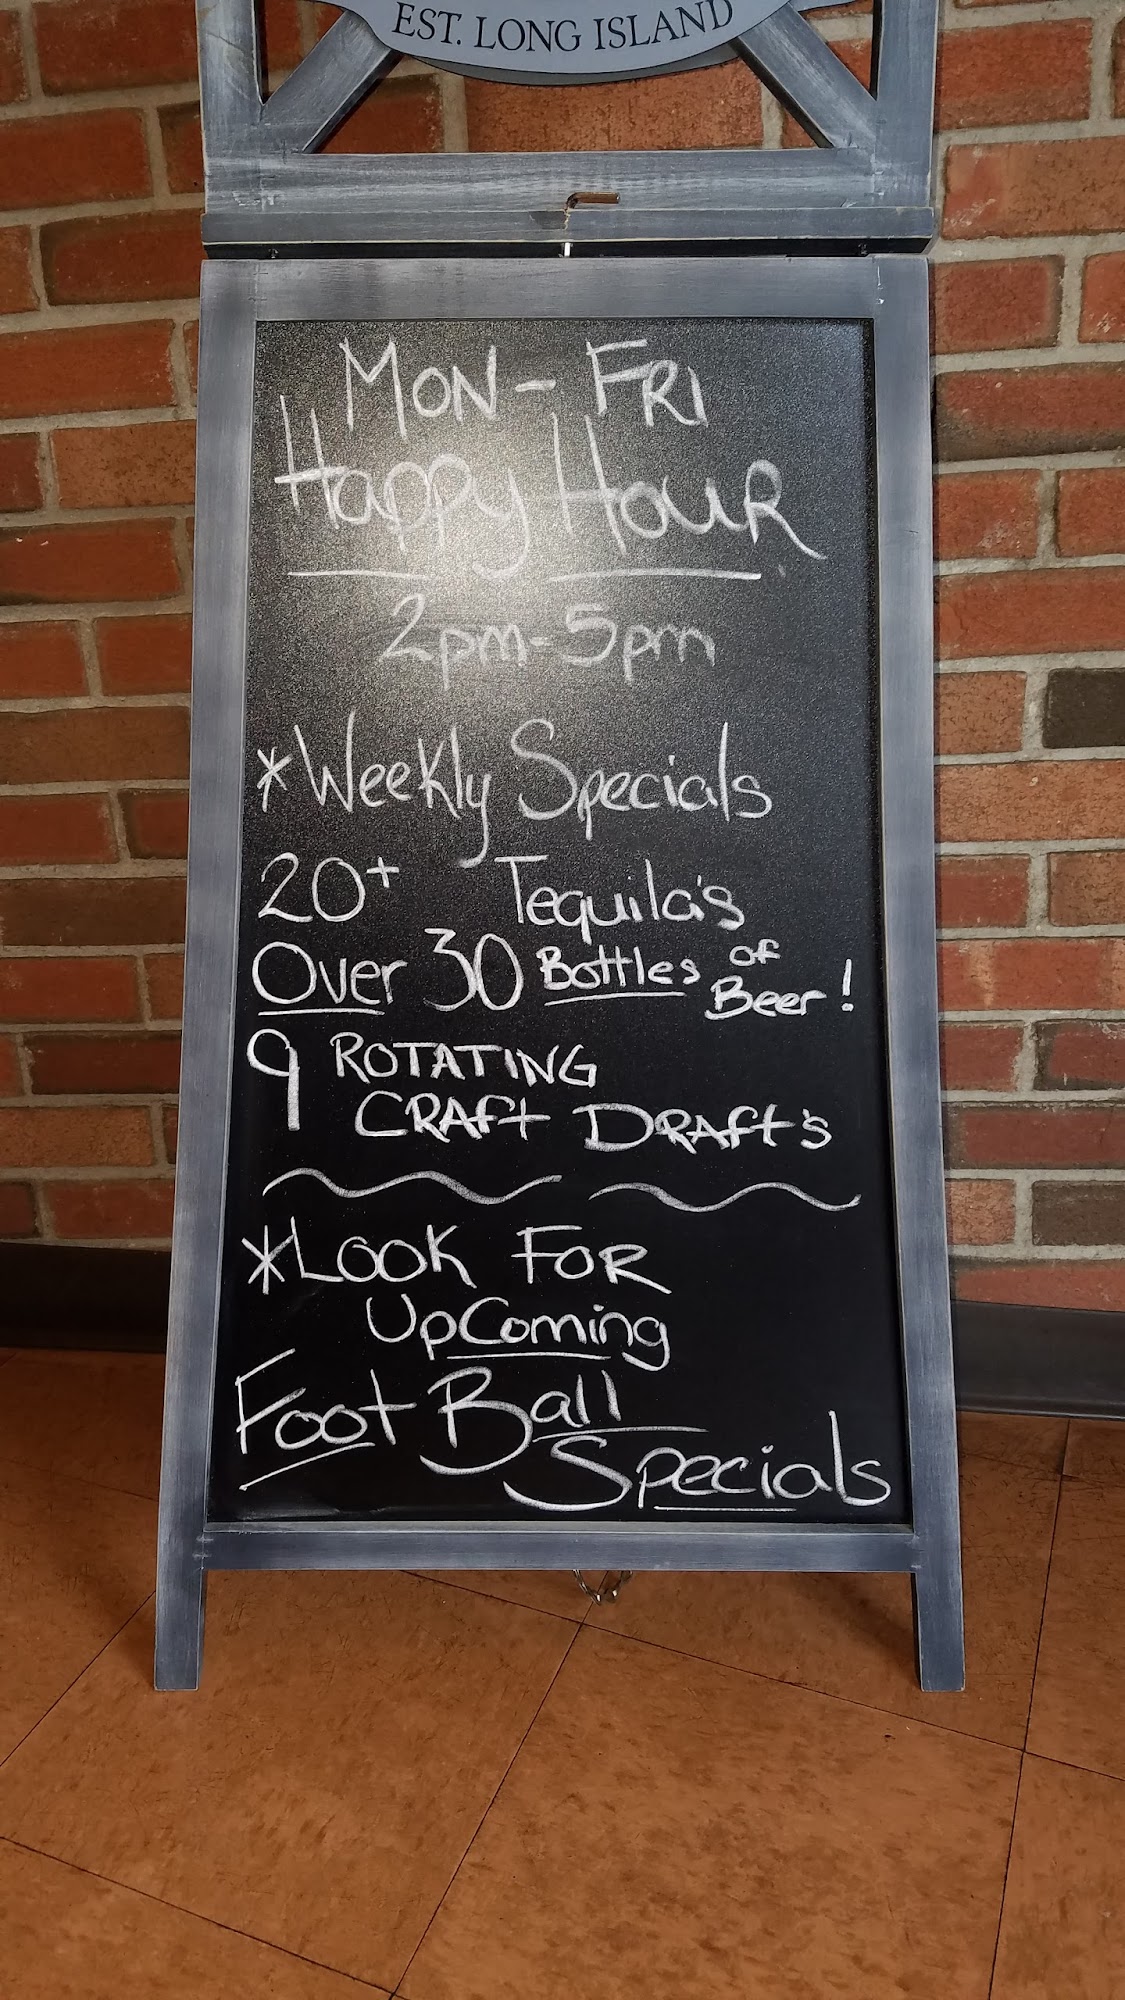 EST. LONG ISLAND
MON - FRI
Happy Hour
2pm - 5pm
*Weekly Specials
20+ Tequila's
Over 30 Bottles of Beer!
9 ROTATING
CRAft DRAft's
*Look FOR
UpComing
Foot Ball
Specials